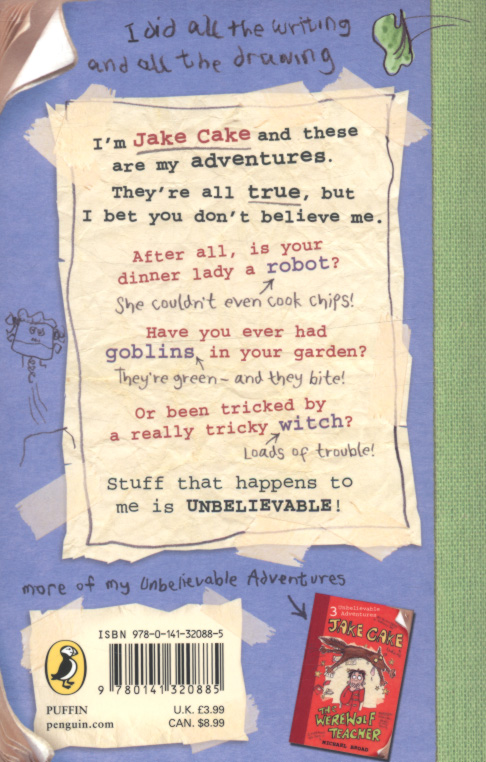 I did all the writing
and all the drawing
I'm Jake Cake and these
are my adventures.
They're all true, but
I bet you don't believe me.
After all, is your
dinner lady a robot?
She couldn't even cook chips!
Have you ever had
goblins in your garden?
They're green - and they bite!
Or been tricked by
a really tricky witch?
Loads of trouble!
Stuff that happens to
me is UNBELIEVABLE!
more of my Unbelievable Adventures
ISBN 978-0-141-32088-5
9 780141 320885
PUFFIN
penguin.com
U.K. £3.99
CAN. $8.99
3 Unbelievable
Adventures
JAKE CAKE
THE
WEREWOLF
TEACHER
MICHAEL BROAD